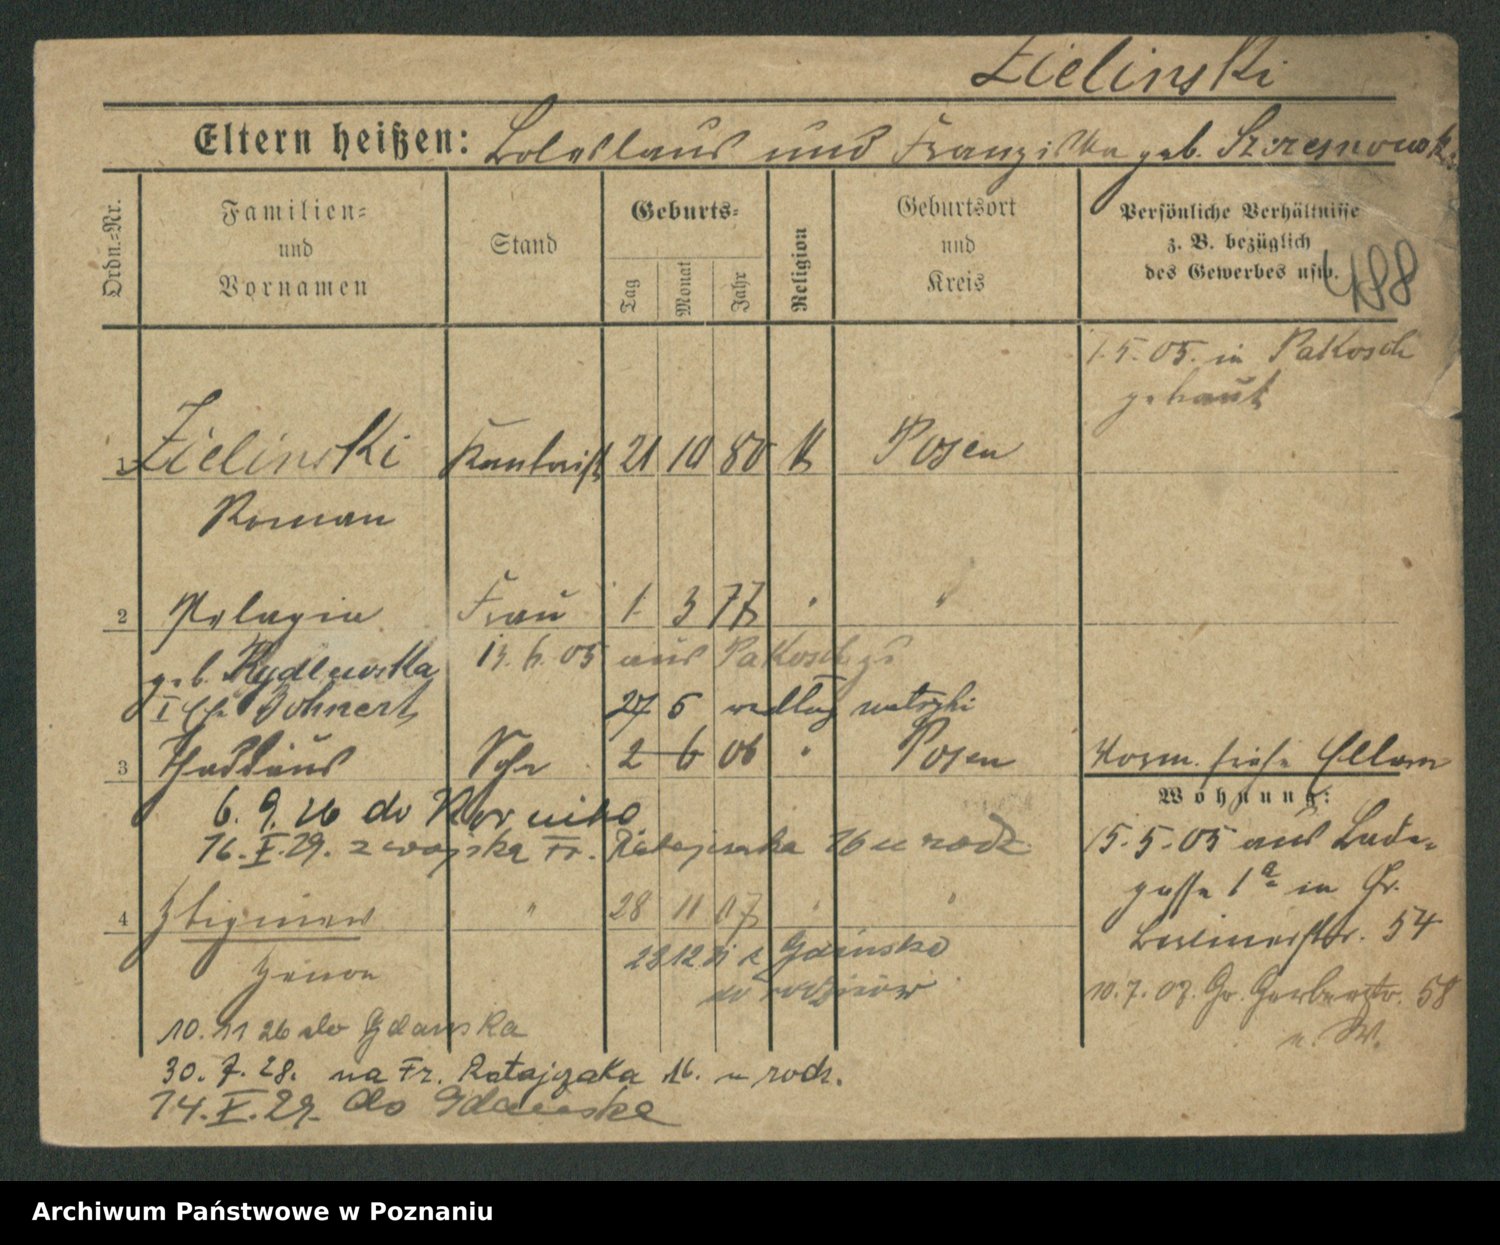 Zielinski
Eltern heißen: Boleslaus und Franziska geb.
Ordn.-Nr.
Familien-
und
Vornamen
Stand
Geburts-
Tag
Monat
Jahr
Religion
Geburtsort
und
Kreis
Persönliche Verhältnisse
z. B. bezüglich
des Gewerbes usw.
488
1.5.05. in Pakosch
getraut
1 Zielinski 21 10 80 k Posen
Roman
2 Pelagia Frau 1. 3 77 " "
geb. Rydlewska 13.6.05 aus Pakosch
I Ehe Bohnert 27 5 według metryki
3 Thaddäus Sohn 2 6 06 " Posen Vorm. siehe Eltern
Wohnung:
6.9.26 do Kórnika
16.X.29. z wojska Fr. Ratajczaka 16 u rodz.
15.5.05 aus
gasse 1a in Gr.
Berlinerstr. 54
4 Zbigniew " 28 11 07 " "
Zenon
23 12 z Gdańska
do rodziców
10.7.07. Gr. Gerberstr. 58
10.11 26 do Gdańska
30.7.28. na Fr. Ratajczaka 16. u rodz.
14.X.29. do Gdańska
Archiwum Państwowe w Poznaniu